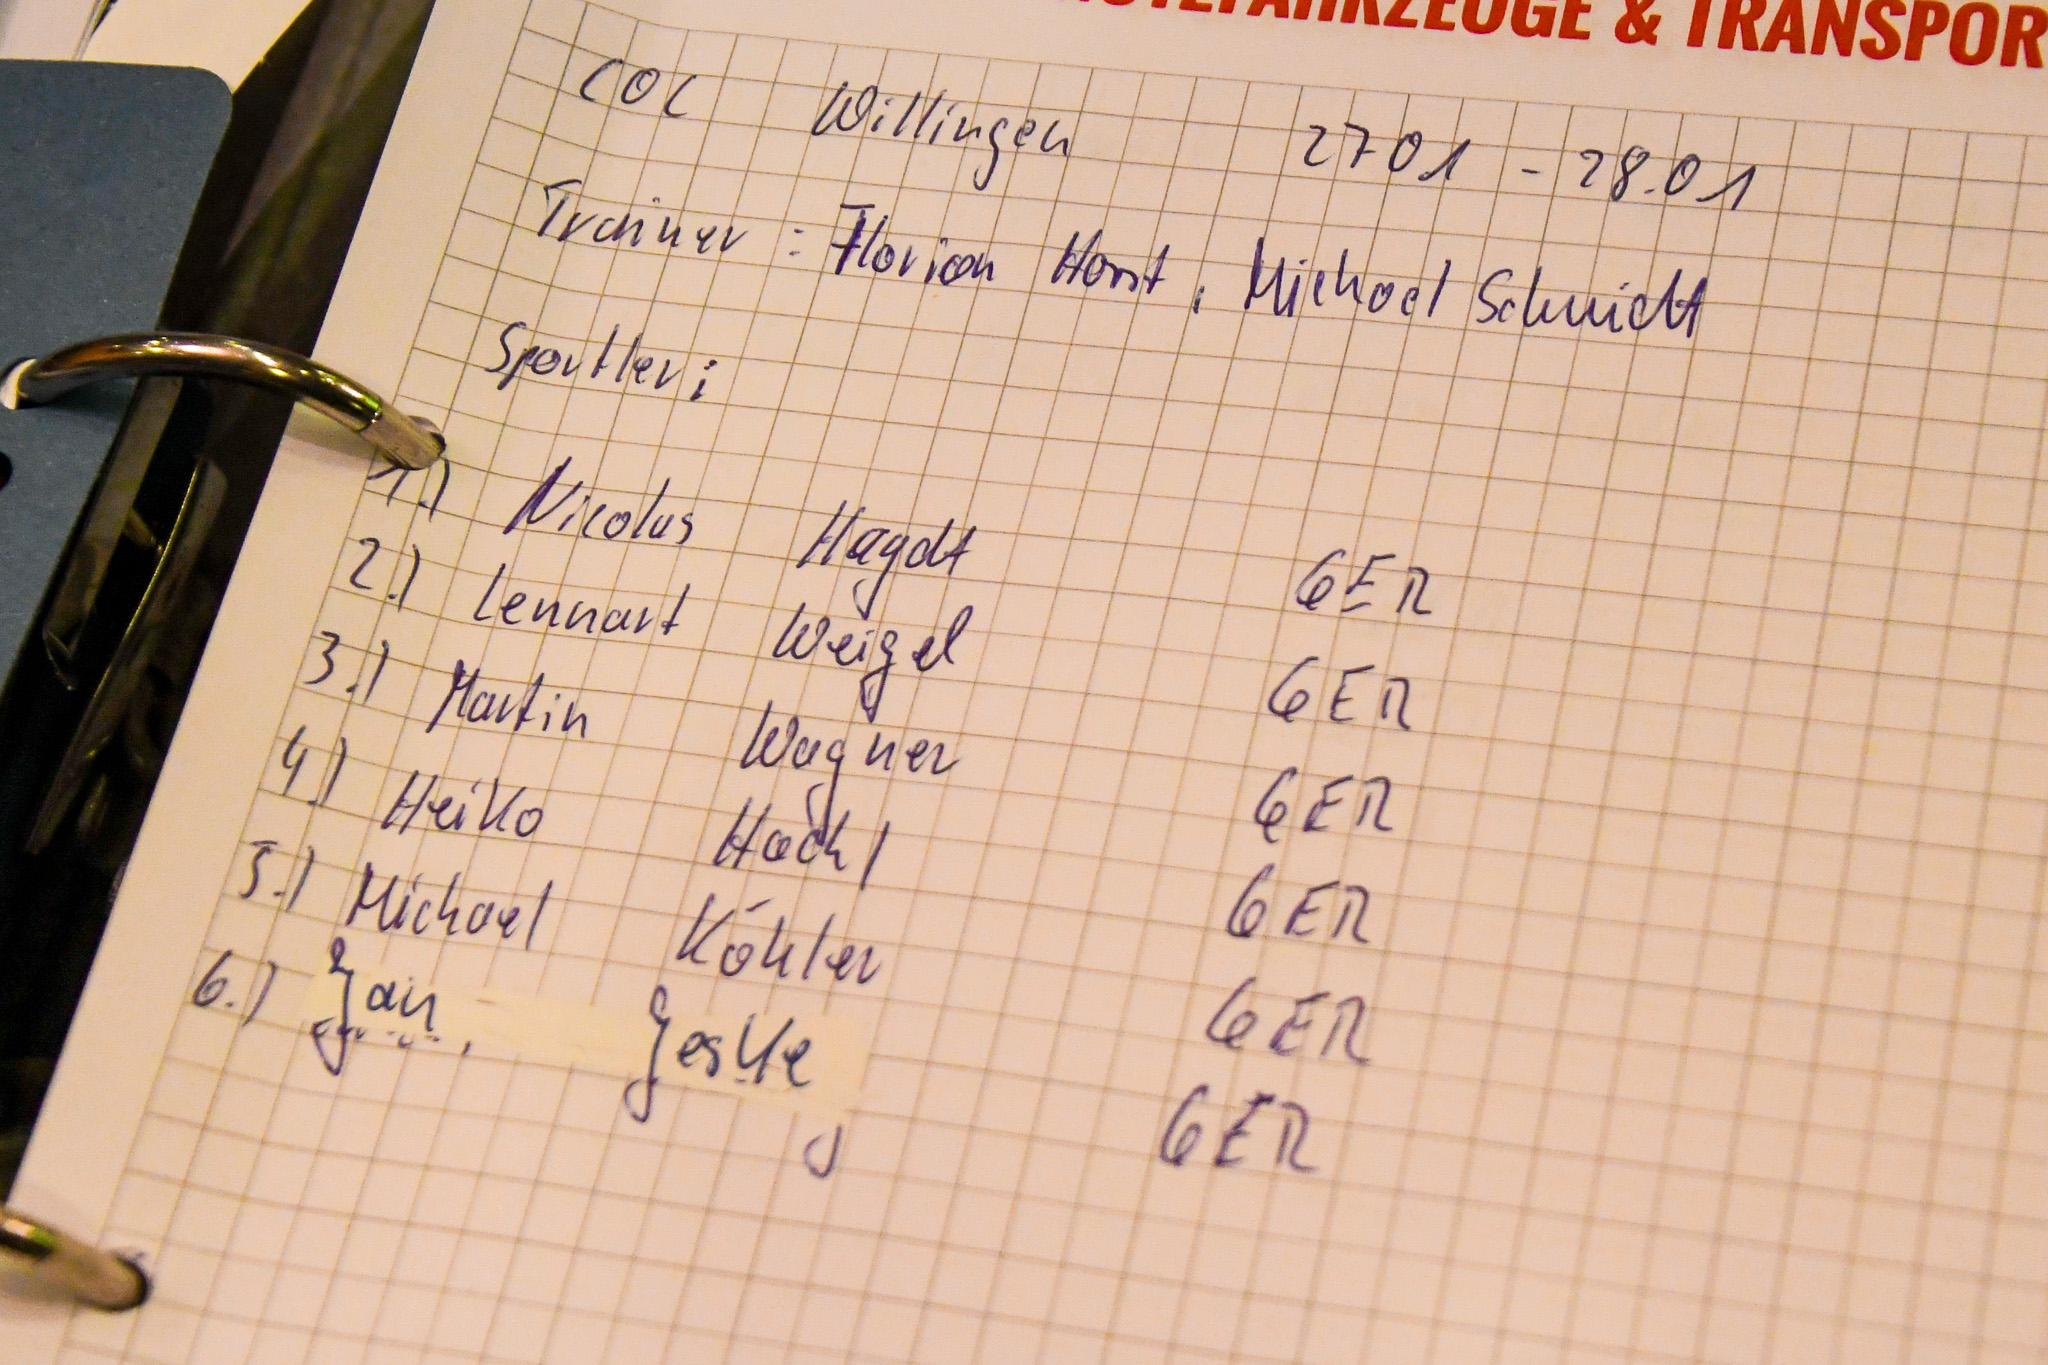 & TRANSPOR
COC Willingen 2701 - 28.01
Trainer : Florian Horst, Michael Schmidt
Sportler:
1.) Nicolas Haydt GER
2.) Lennart Weigel GER
3.) Martin Wagner GER
4.) Heiko Hackl GER
5.) Michael Köhler GER
6.) Jan, Jeske GER